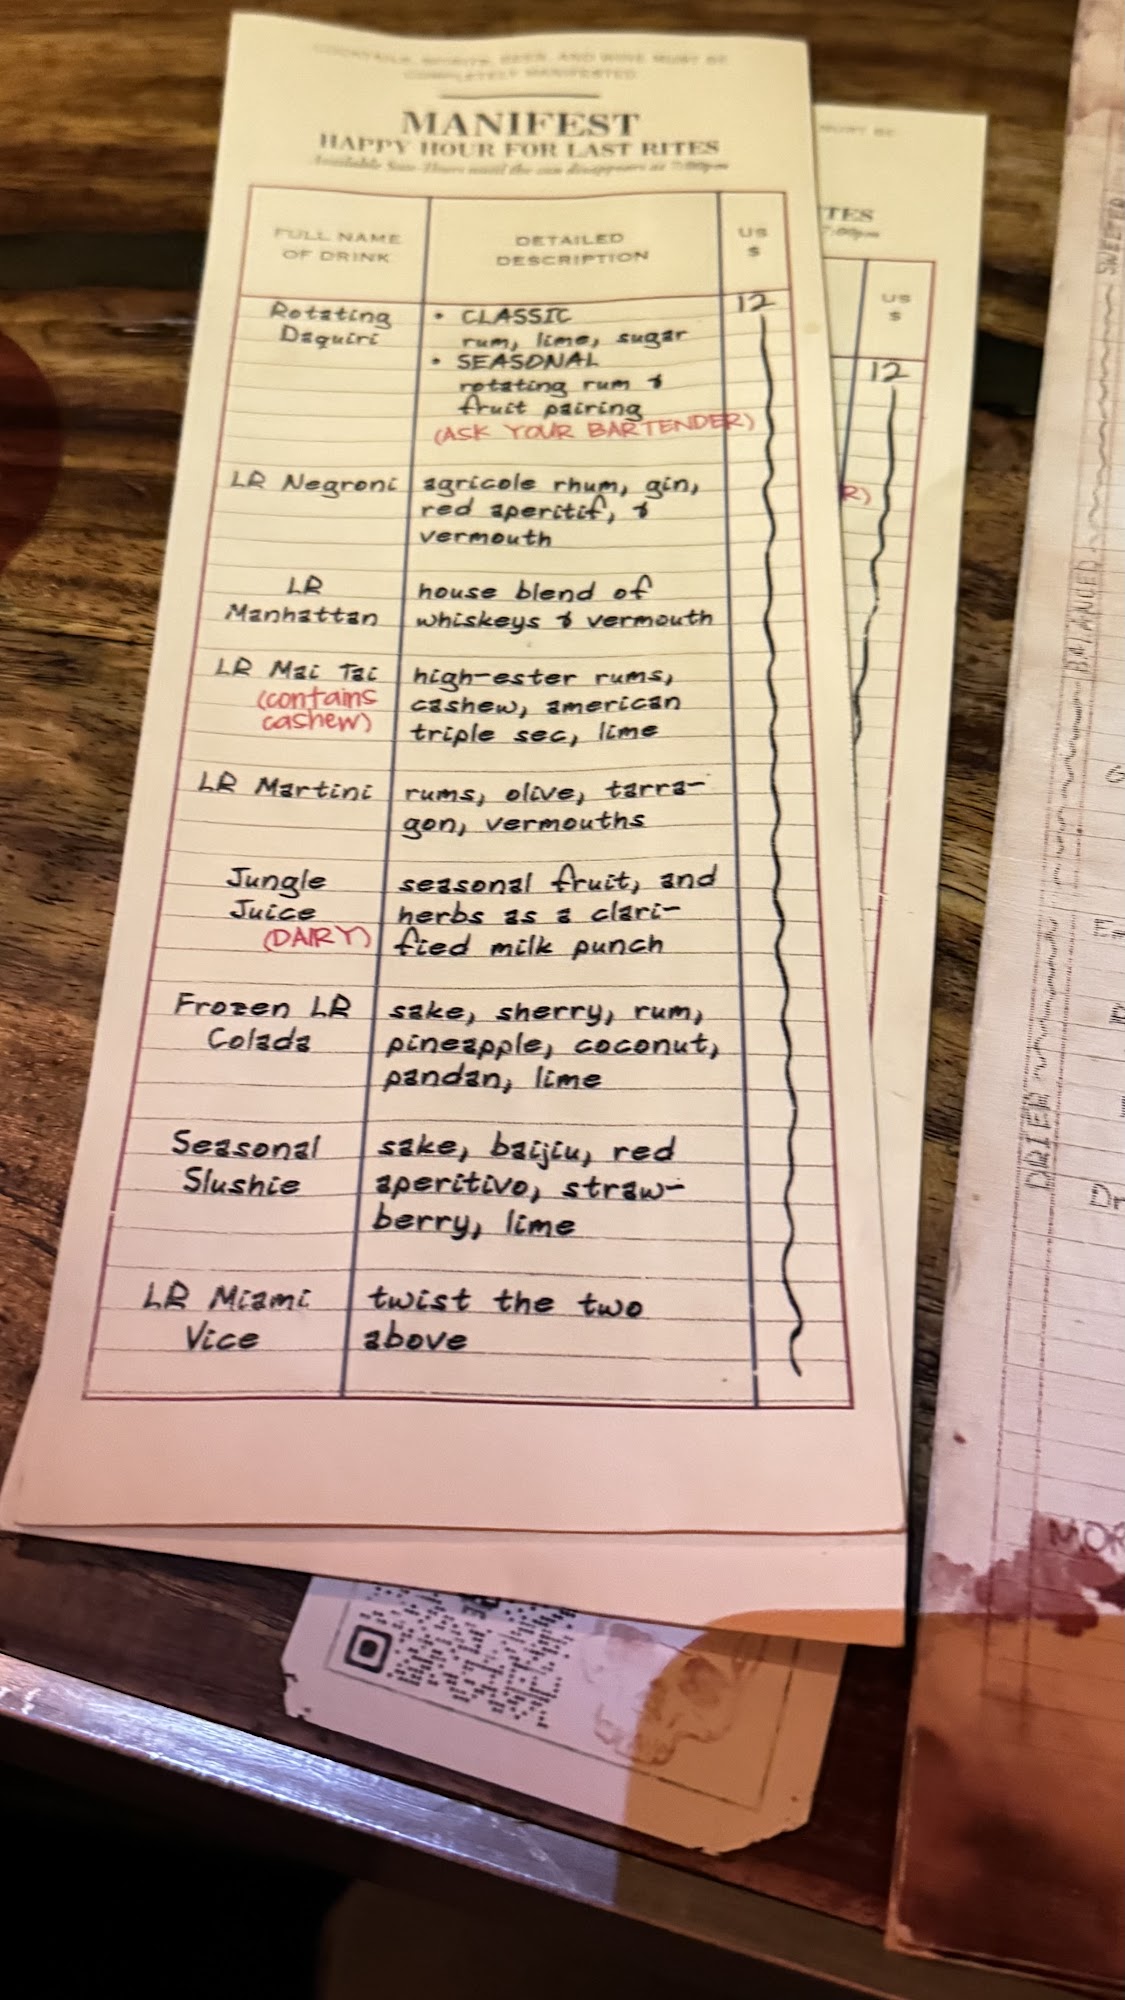 COCKTAILS, SPIRITS, BEER, AND WINE MUST BE
COMPLETELY MANIFESTED
MANIFEST
HAPPY HOUR FOR LAST RITES
Available Sun-Thurs until the sun disappears at 7:00pm
FULL NAME
OF DRINK
DETAILED
DESCRIPTION
US
$
Rotating
Daquiri
• CLASSIC
rum, lime, sugar
• SEASONAL
rotating rum &
fruit pairing
(ASK YOUR BARTENDER)
12
LR Negroni
agricole rhum, gin,
red aperitif, &
vermouth
LR
Manhattan
house blend of
whiskeys & vermouth
LR Mai Tai
(contains
cashew)
high-ester rums,
cashew, american
triple sec, lime
LR Martini
rums, olive, tarra-
gon, vermouths
Jungle
Juice
(DAIRY)
seasonal fruit, and
herbs as a clari-
fied milk punch
Frozen LR
Colada
sake, sherry, rum,
pineapple, coconut,
pandan, lime
Seasonal
Slushie
sake, baijiu, red
aperitivo, straw-
berry, lime
LR Miami
Vice
twist the two
above
MUST BE
TES
7:00pm
US
$
12
R)
SWEETER
BALANCED
DRIER
MOR